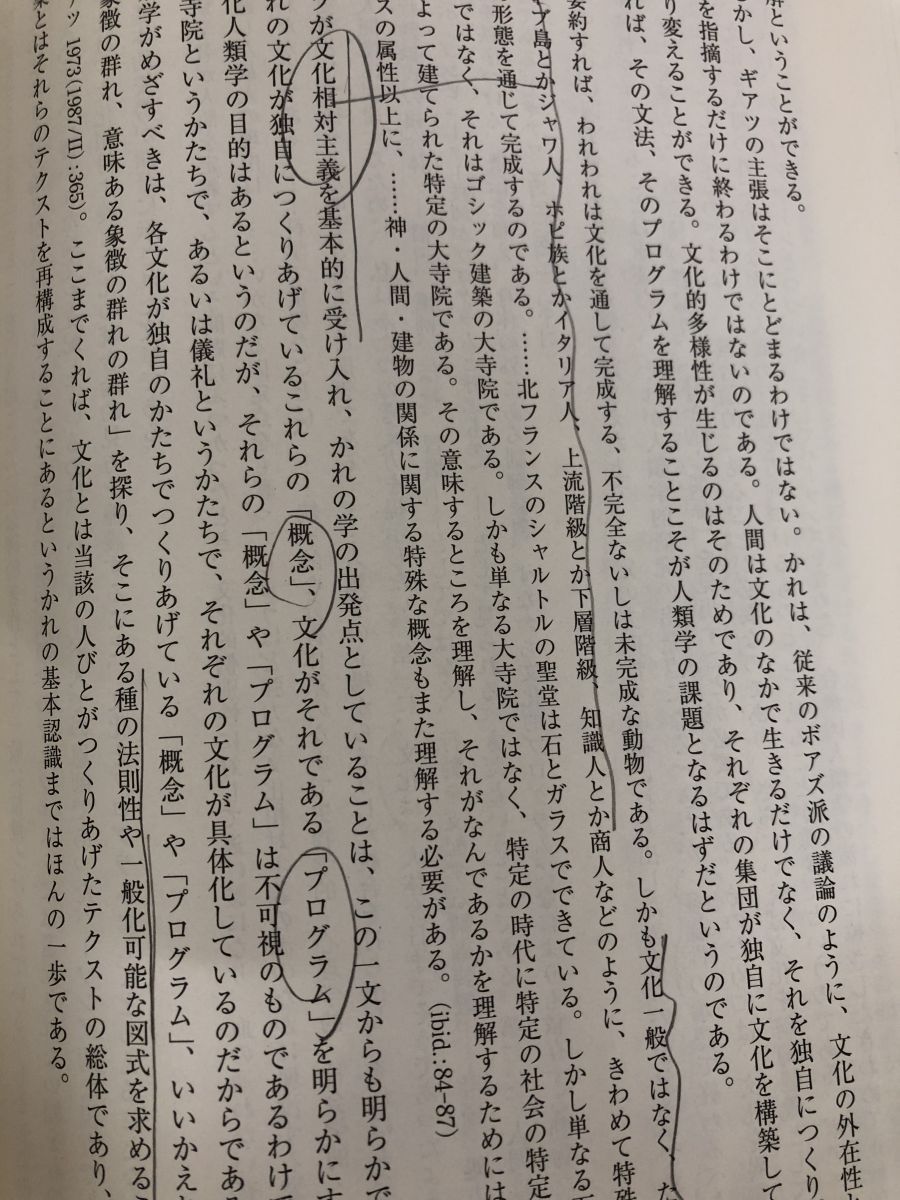 解ということができる。
かし、ギアツの主張はそこにとどまるわけではない。かれは、従来のボアズ派の議論のように、文化の外在性
を指摘するだけに終わるわけではないのである。人間は文化のなかで生きるだけでなく、それを独自につくり
り変えることができる。文化的多様性が生じるのはそのためであり、それぞれの集団が独自に文化を構築して
れば、その文法、そのプログラムを理解することこそが人類学の課題となるはずだというのである。
要約すれば、われわれは文化を通して完成する、不完全ないしは未完成な動物である。しかも文化一般ではなく、
ブ島とかジャワ人、ホピ族とかイタリア人、上流階級とか下層階級、知識人とか商人などのように、きわめて特殊
形態を通じて完成するのである。……北フランスのシャルトルの聖堂は石とガラスでできている。しかし単なる石
ではなく、それはゴシック建築の大寺院である。しかも単なる大寺院ではなく、特定の時代に特定の社会の特定
よって建てられた特定の大寺院である。その意味するところを理解し、それがなんであるかを理解するためには
スの属性以上に、……神・人間・建物の関係に関する特殊な概念もまた理解する必要がある。(ibid.:84-87)
ツが文化相対主義を基本的に受け入れ、かれの学の出発点としていることは、この一文からも明らかで
れの文化が独自につくりあげているこれらの「概念」、文化がそれである「プログラム」を明らかにす
化人類学の目的はあるというのだが、それらの「概念」や「プログラム」は不可視のものであるわけ
寺院というかたちで、あるいは儀礼というかたちで、それぞれの文化が具体化しているのだからであ
学がめざすべきは、各文化が独自のかたちでつくりあげている「概念」や「プログラム」、いいかえ
象徴の群れ、意味ある象徴の群れの群れ」を探り、そこにある種の法則性や一般化可能な図式を求めるこ
ツ 1973(1987/II):365)。ここまでくれば、文化とは当該の人びとがつくりあげたテクストの総体であり、
業とはそれらのテクストを再構成することにあるというかれの基本認識まではほんの一歩である。